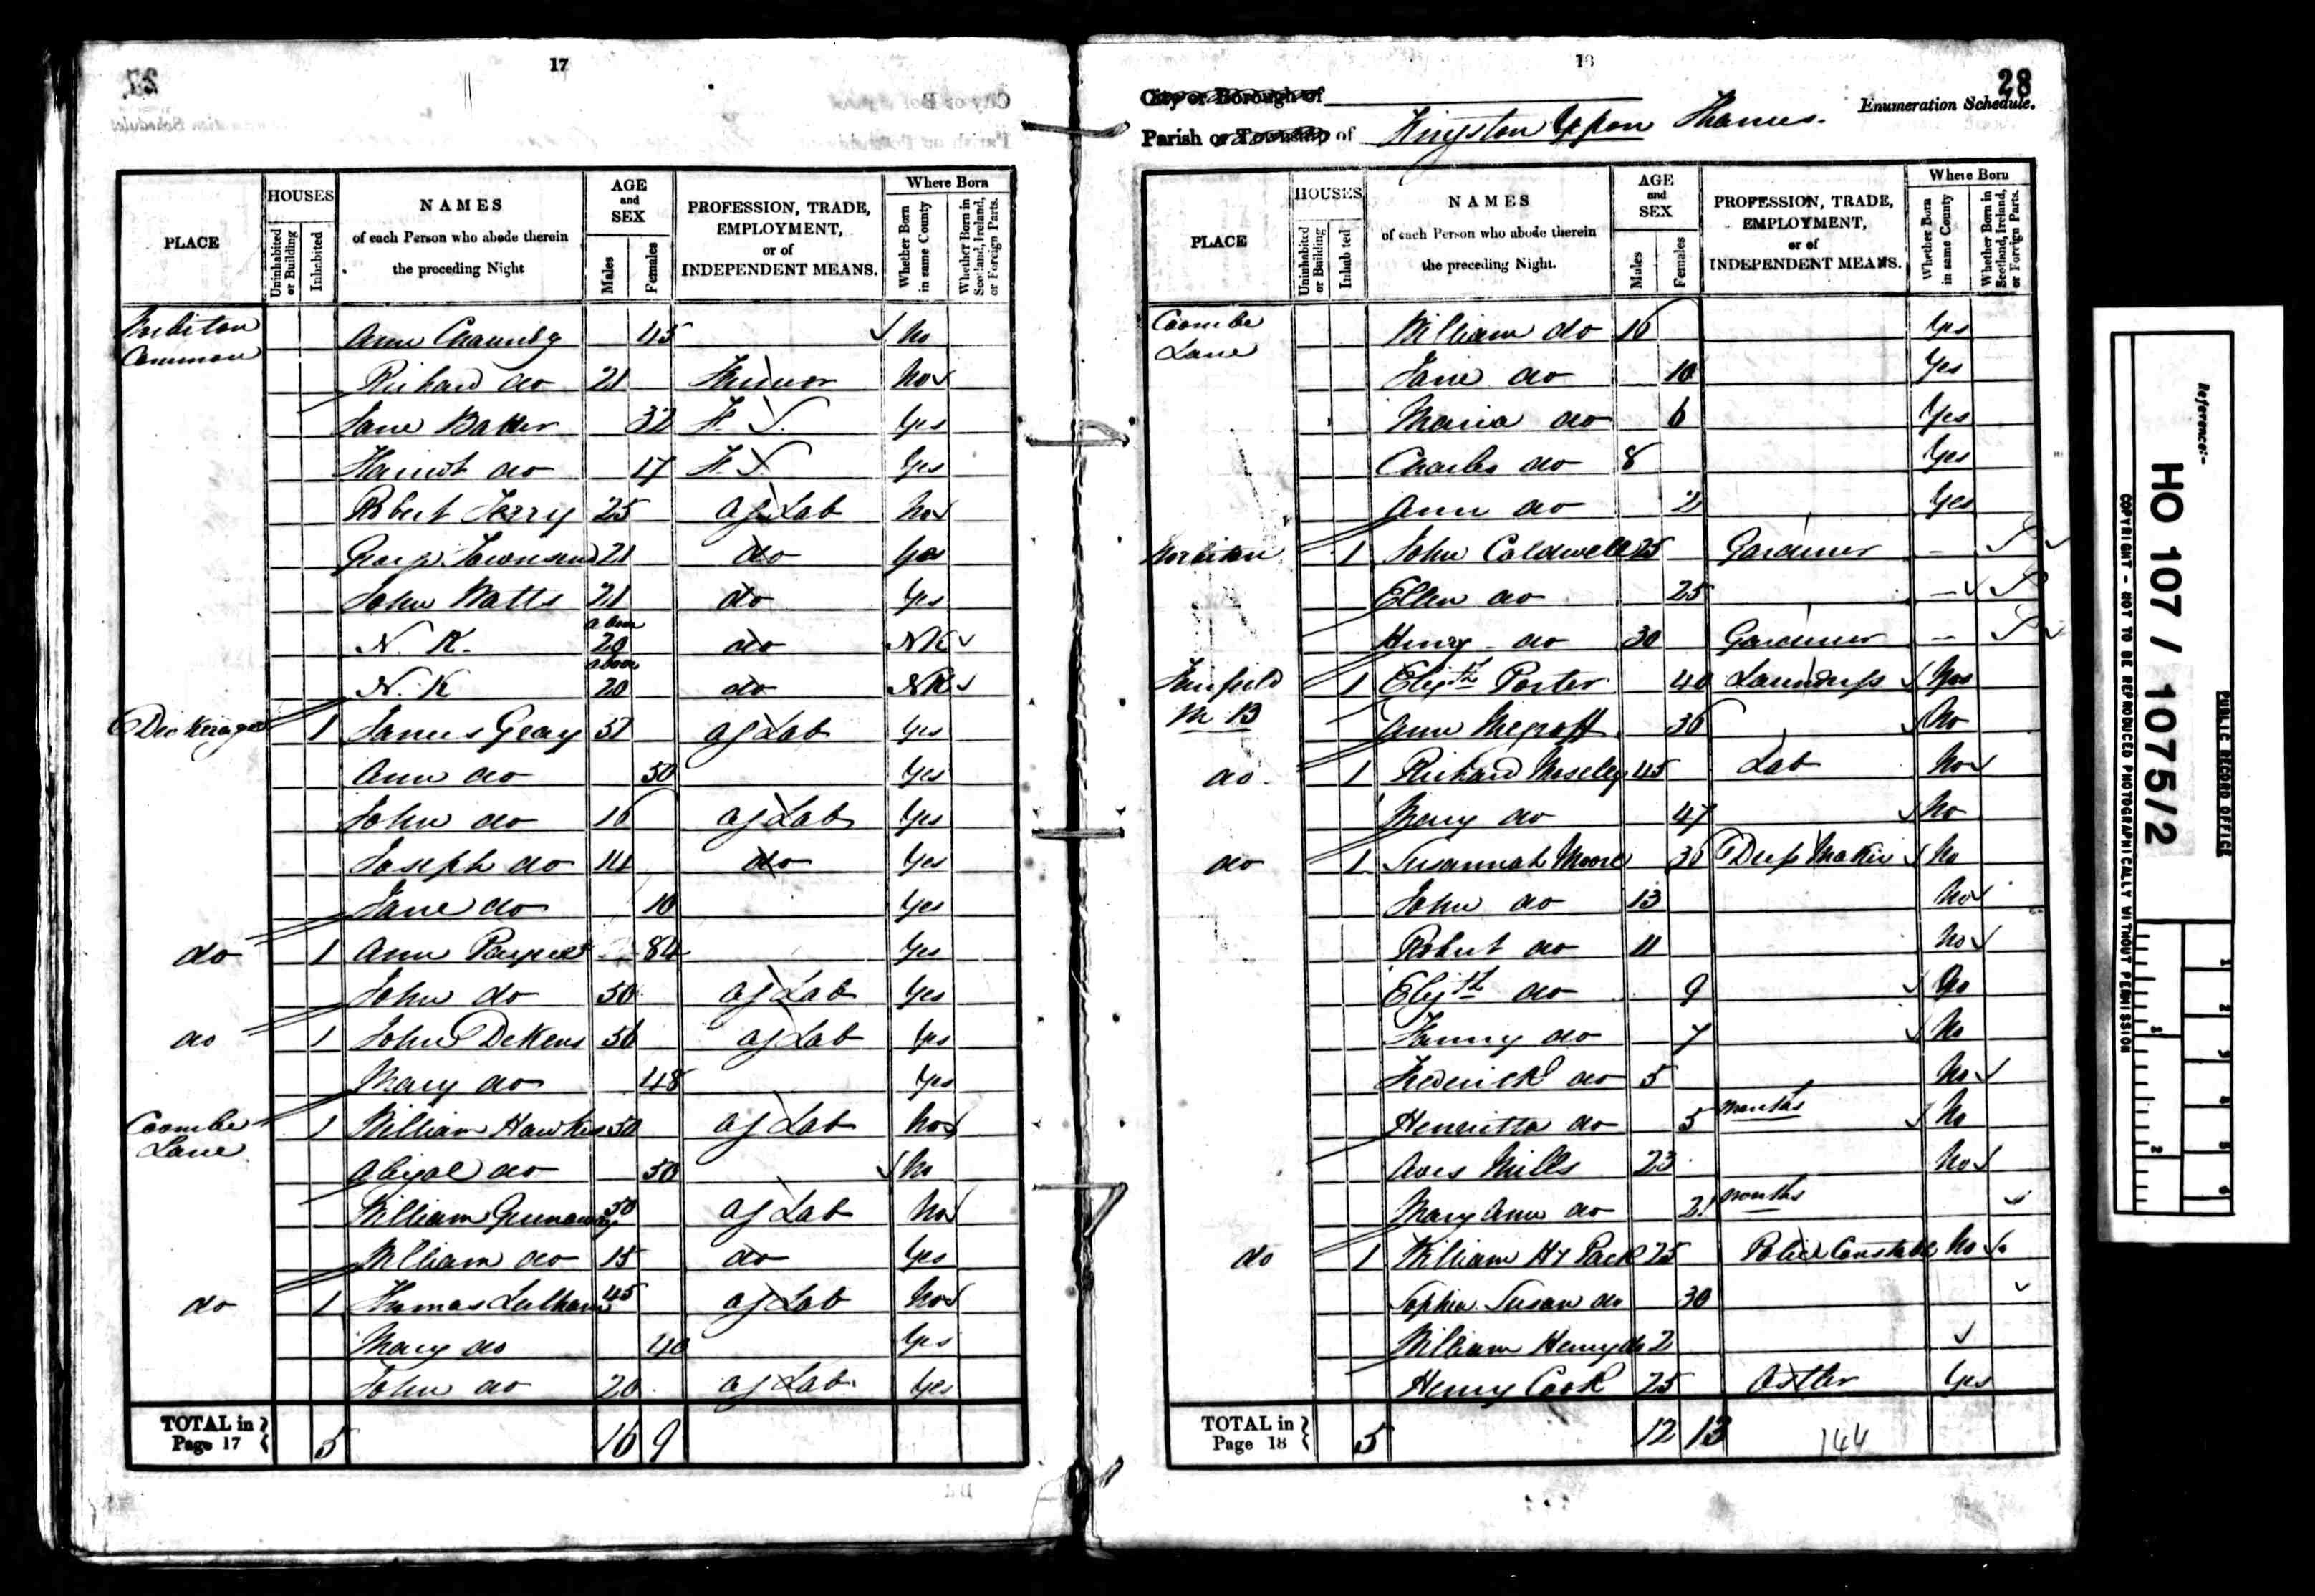 17
PLACE
HOUSES
Uninhabited or Building
Inhabited
NAMES
of each Person who abode therein
the preceding Night
AGE and SEX
Males
Females
PROFESSION, TRADE, EMPLOYMENT, or of INDEPENDENT MEANS.
Where Born
Whether Born in same County
Whether Born in Scotland, Ireland, or Foreign Parts.
Norbiton Common Ann 45 No
Richard do 21 No
Jane Baker 32 F. S. Yes
Harriot do 17 F. S. Yes
Robert Terry 25 Ag Lab No
George Townsend 21 do Yes
John Watts 21 do Yes
N. K. above 20 do NK
N. K above 20 do NK
1 James Gray 51 Ag Lab Yes
Ann do 50 Yes
John do 16 Ag Lab Yes
Joseph do 14 do Yes
Jane do 10 Yes
do 1 Ann 84 Yes
John do 50 Ag Lab Yes
do 1 John Dekens 56 Ag Lab Yes
Mary do 48 Yes
Coombe Lane 1 William Hawkes 50 Ag Lab No
Abigal do 50 No
William 50 Ag Lab No
William do 15 do Yes
do 1 Thomas 45 Ag Lab No
Mary do 40 Yes
John do 20 Ag Lab Yes
TOTAL in Page 17 5 16 9
18
28
City or Borough of
Enumeration Schedule.
Parish or Township of Kingston Upon Thames.
PLACE
HOUSES
Uninhabited or Building
Inhabited
NAMES
of each Person who abode therein
the preceding Night.
AGE and SEX
Males
Females
PROFESSION, TRADE, EMPLOYMENT, or of INDEPENDENT MEANS.
Where Born
Whether Born in same County
Whether Born in Scotland, Ireland, or Foreign Parts.
Coombe Lane William do 16 Yes
Jane do 10 Yes
Maria do 6 Yes
Charles do 8 Yes
Ann do 2 Yes
Norbiton 1 John Caldwell 25 Gardener - S
Ellen do 25 - S
Henry do 30 Gardener - S
Fairfield 1 Elizth Porter 40 Laundress
Ann 36 No
do 1 Richard Moseley 45 Lab No
Mary do 47 No
do 1 Susannah Moore 36 Dress Maker No
John do 13 No
Robert do 11 No
Elizth do 9 No
Fanny do 7 No
Frederick do 5 No
Henrietta do 5 months No
Aves Mills 23 No
Mary Ann do 2 months
do 1 William Hy Pack 25 Police Constable No
Sophia Susan do 30
William Henry do 2
Henry Cook 25 Ostler Yes
TOTAL in Page 18 5 12 13 144
Reference:-
HO 107 / 1075/2
PUBLIC RECORD OFFICE
COPYRIGHT - NOT TO BE REPRODUCED PHOTOGRAPHICALLY WITHOUT PERMISSION